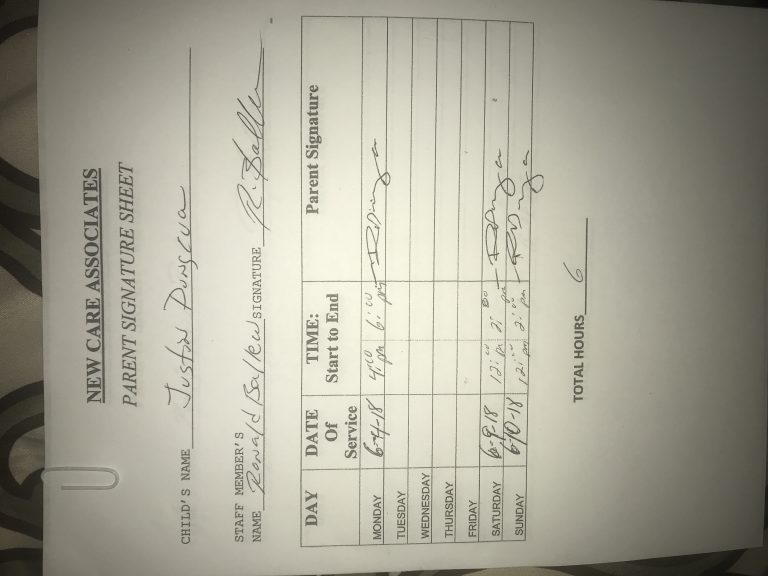 NEW CARE ASSOCIATES
PARENT SIGNATURE SHEET
CHILD'S NAME Justin
STAFF MEMBER'S
NAME Ronald Balkew SIGNATURE R. Balkew
DAY DATE Of Service TIME: Start to End Parent Signature
MONDAY 6-4-18 4:00 pm 6:00 pm
TUESDAY
WEDNESDAY
THURSDAY
FRIDAY
SATURDAY 6-9-18 12:00 pm 2:00 pm
SUNDAY 6-10-18 12:00 pm 2:00 pm
TOTAL HOURS 6